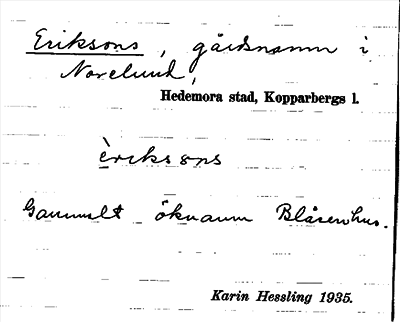 Eriksons, gårdsnamn i
Norelund,
Hedemora stad, Kopparbergs l.
èriksons
Gammalt öknamn Blåsenhus.
Karin Hessling 1935.